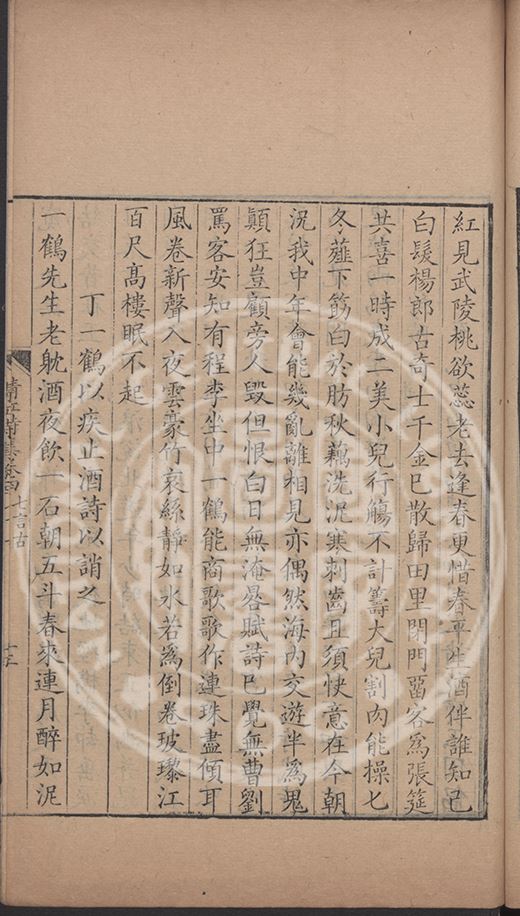 紅見武陵桃欲蕊老去逢春更惜春平生酒伴誰知己
白髮楊郎古奇士千金已散歸田里閉門畱客為張筵
共喜一時成二美小兒行觴不計籌大兒割肉能操匕
冬薤下筯白於肪秋藕洗泥寒刺齒且須快意在今朝
況我中年會能幾亂離相見亦偶然海內交遊半為鬼
顛狂豈顧旁人毀但恨白日無淹晷賦詩已覺無曹劉
罵客安知有程李坐中一鶴能商歌歌作連珠盡傾耳
風卷新聲入夜雲豪竹哀絲靜如水若為倒卷玻瓈江
百尺高樓眠不起
丁一鶴以疾止酒詩以誚之
一鶴先生老躭酒夜飲一石朝五斗春來連月醉如泥
清江詩集卷四 七言古 十三